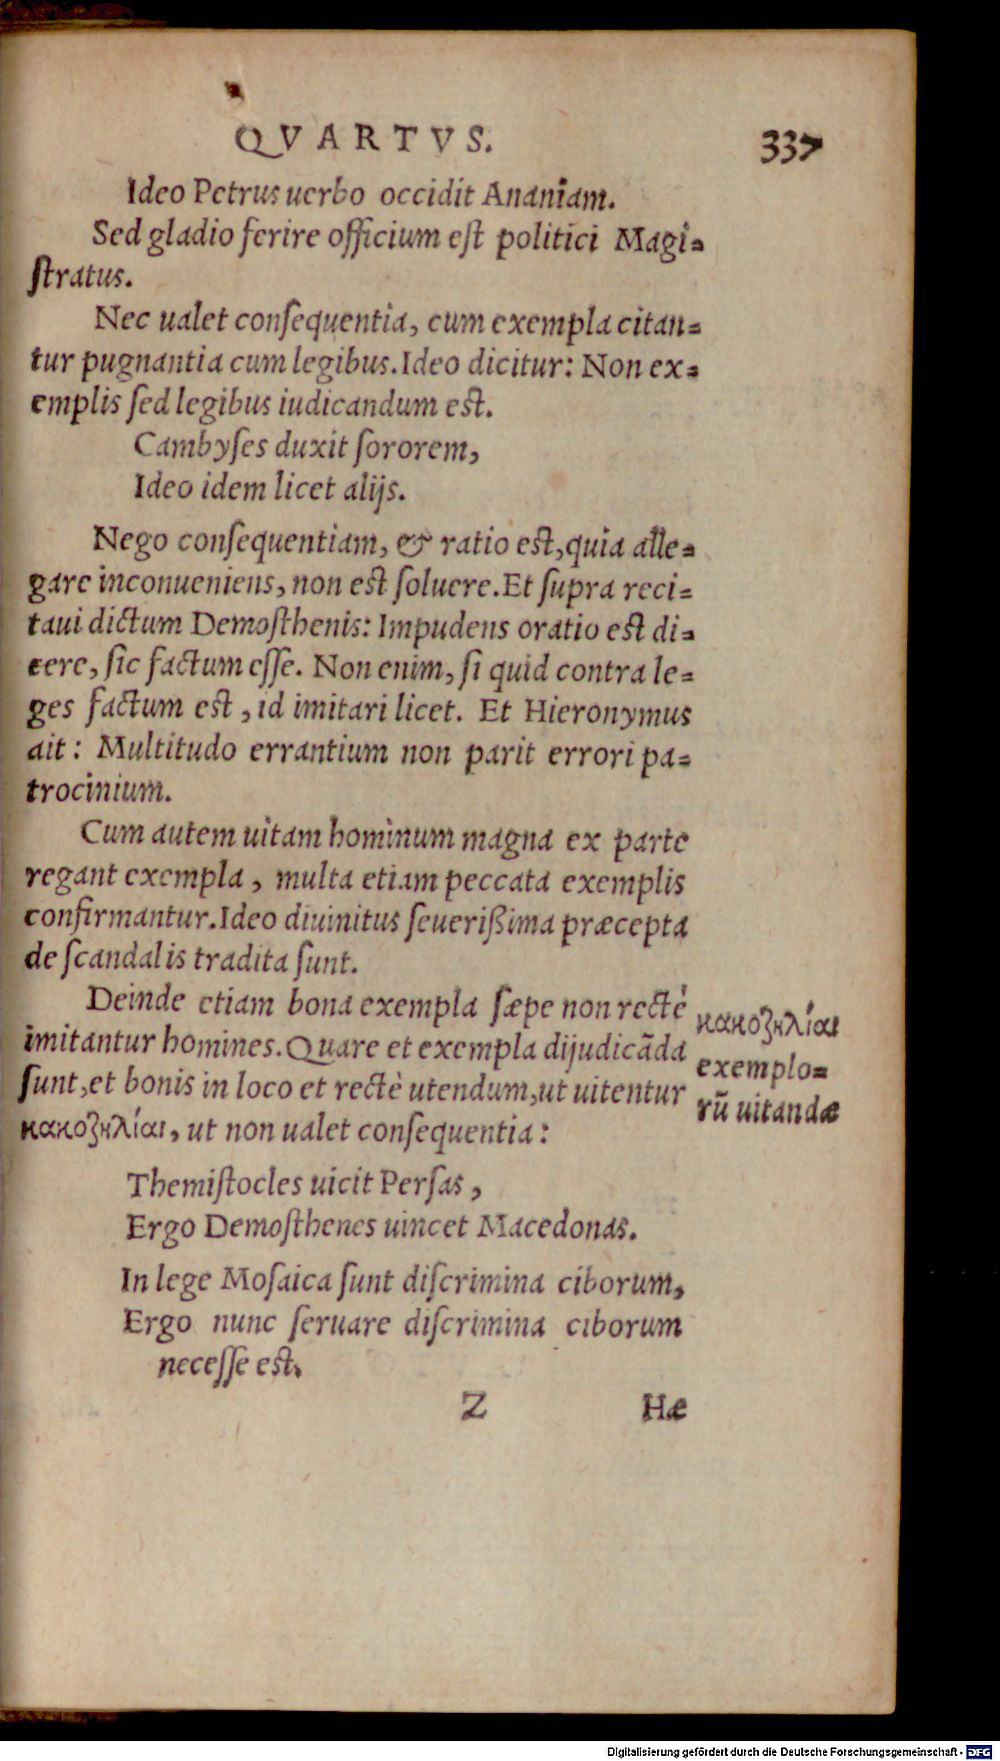 QVARTVS. 337
Ideo Petrus uerbo occidit Ananiam.
Sed gladio ferire officium eſt politici Magi=
ſtratus.
Nec ualet conſequentia, cum exempla citan=
tur pugnantia cum legibus. Ideo dicitur: Non ex=
emplis ſed legibus iudicandum est.
Cambyſes duxit ſororem,
Ideo idem licet alijs.
Nego conſequentiam, & ratio est, quia alle=
gare inconueniens, non est ſoluere. Et ſupra reci=
taui dictum Demoſthenis: Impudens oratio est di=
cere, ſic factum eſſe. Non enim, ſi quid contra le=
ges factum est, id imitari licet. Et Hieronymus
ait: Multitudo errantium non parit errori pa=
trocinium.
Cum autem uitam hominum magna ex parte
regant exempla, multa etiam peccata exemplis
confirmantur. Ideo diuinitus ſeuerißima præcepta
de ſcandalis tradita ſunt.
Deinde etiam bona exempla ſæpe non rectè
imitantur homines. Quare et exempla dijudicãda
ſunt, et bonis in loco et rectè utendum, ut uitentur
κακοζηλίαι, ut non ualet conſequentia:
κακοζηλίαι
exemplo=
rũ uitandæ
Themiſtocles uicit Perſas,
Ergo Demoſthenes uincet Macedonas.
In lege Moſaica ſunt diſcrimina ciborum,
Ergo nunc ſeruare diſcrimina ciborum
neceſſe est.
Z Hæ
Digitalisierung gefördert durch die Deutsche Forschungsgemeinschaft - DFG